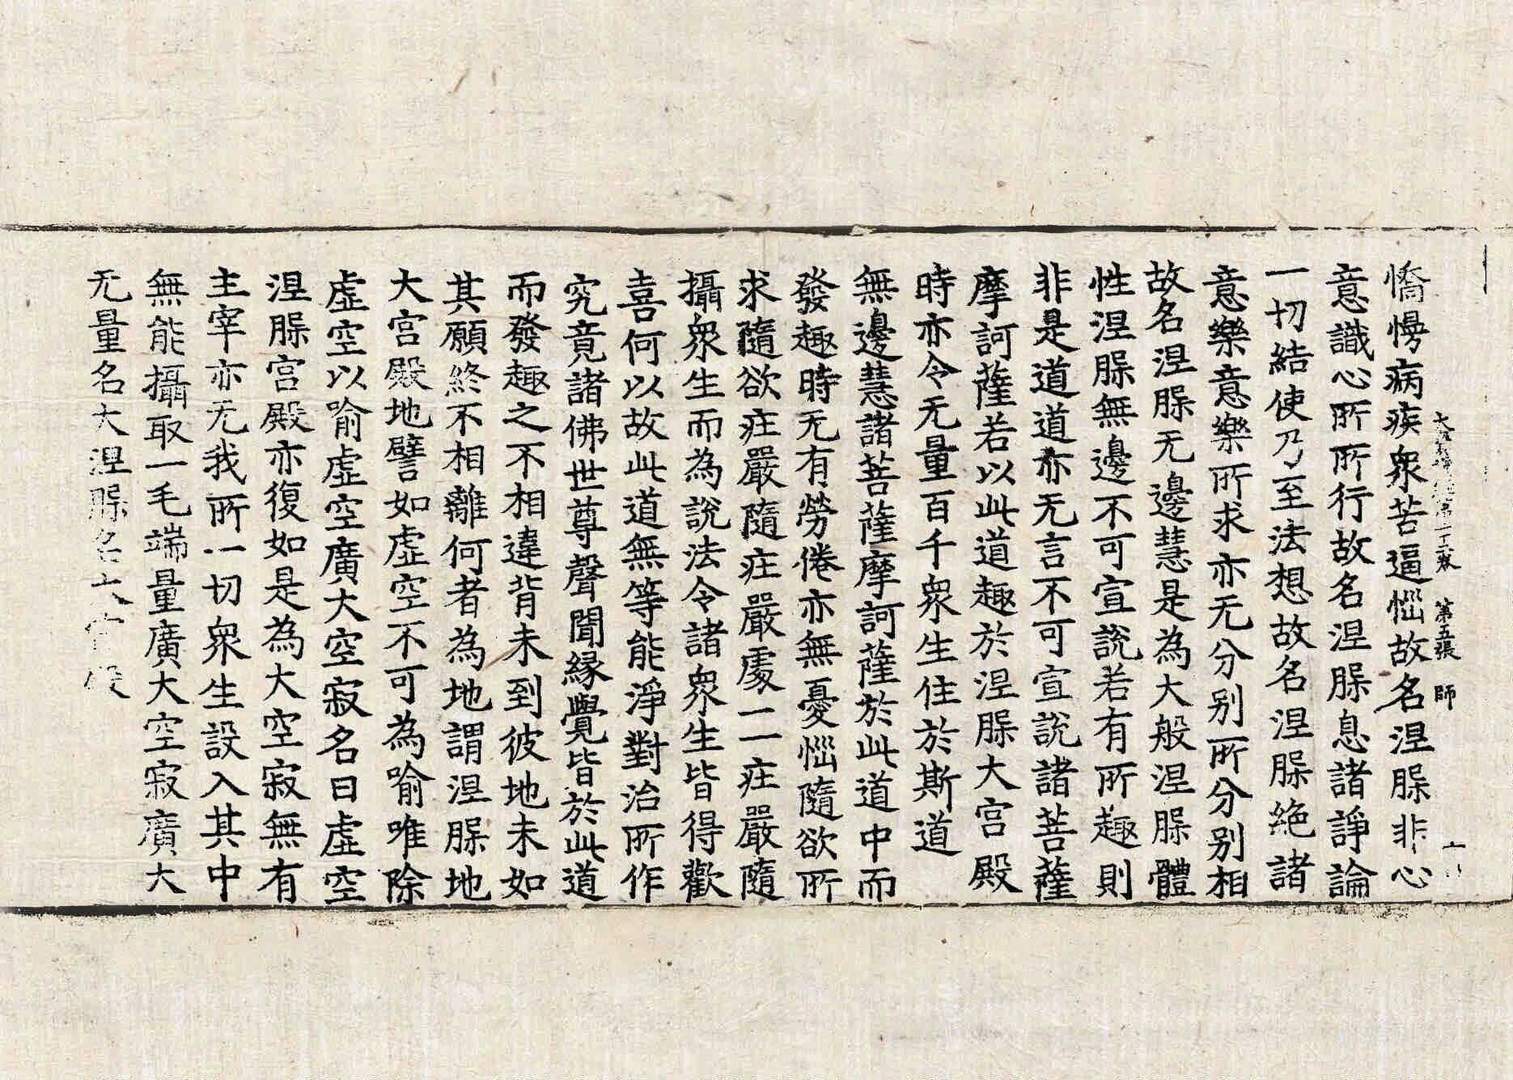 憍慢病疾衆苦逼惱故名涅槃非心
意識心所所行故名涅槃息諸諍論
一切結使乃至法想故名涅槃絶諸
意樂意樂所求亦无分别所分别相
故名涅槃无邊慧是為大般涅槃體
性涅槃無邊不可宣說若有所趣則
非是道道亦无言不可宣說諸菩薩
摩訶薩若以此道趣於涅槃大宮殿
時亦令无量百千衆生住於斯道
無邊慧諸菩薩摩訶薩於此道中而
發趣時无有勞倦亦無憂惱隨欲所
求隨欲莊嚴隨莊嚴處一一莊嚴隨
攝衆生而為說法令諸衆生皆得歡
喜何以故此道無等能淨對治所作
究竟諸佛世尊聲聞緣覺皆於此道
而發趣之不相違背未到彼地未如
其願終不相離何者為地謂涅槃地
大宮殿地譬如虛空不可為喻唯除
虛空以喻虛空廣大空寂名曰虛空
涅槃宮殿亦復如是為大空寂無有
主宰亦无我所一切衆生設入其中
無能攝取一毛端量廣大空寂廣大
无量名大涅槃名大宮殿
第五張 師